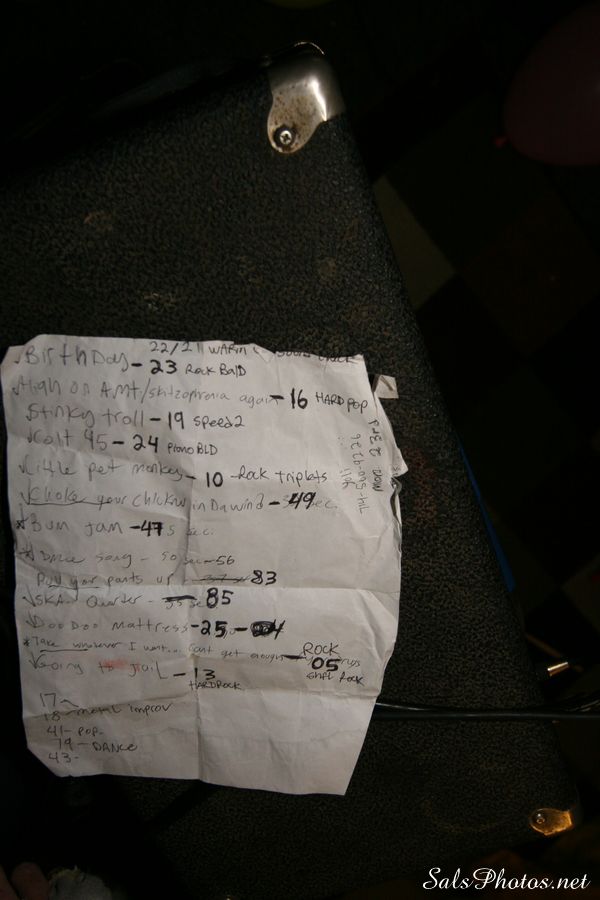 22/21 WARM
✓BirthDay - 23 Rock Bald
✓High on AMT/skitzophronia again - 16 HARD POP
Stinky troll - 19 Speed 2
✓Colt 45 - 24 PIANO BLD
✓Little pet monkey - 10 Rock Triplets
✓Choke your chickin in Da wind - 49 sec.
*Bum Jam - 47 5 sec.
*Dance song - 50 sec - 56
Pull your pants up - 83
✓SKA Quarter - 35 sec 85
✓Doo Doo Mattress - 25 -
*Take whatever I want... Cant get enough - ROCK 05
shfl Rock
✓Going to jail - 13
HARDROCK
17
18 - metal improv
41 - POP -
79 - DANCE
43 -
SalsPhotos.net